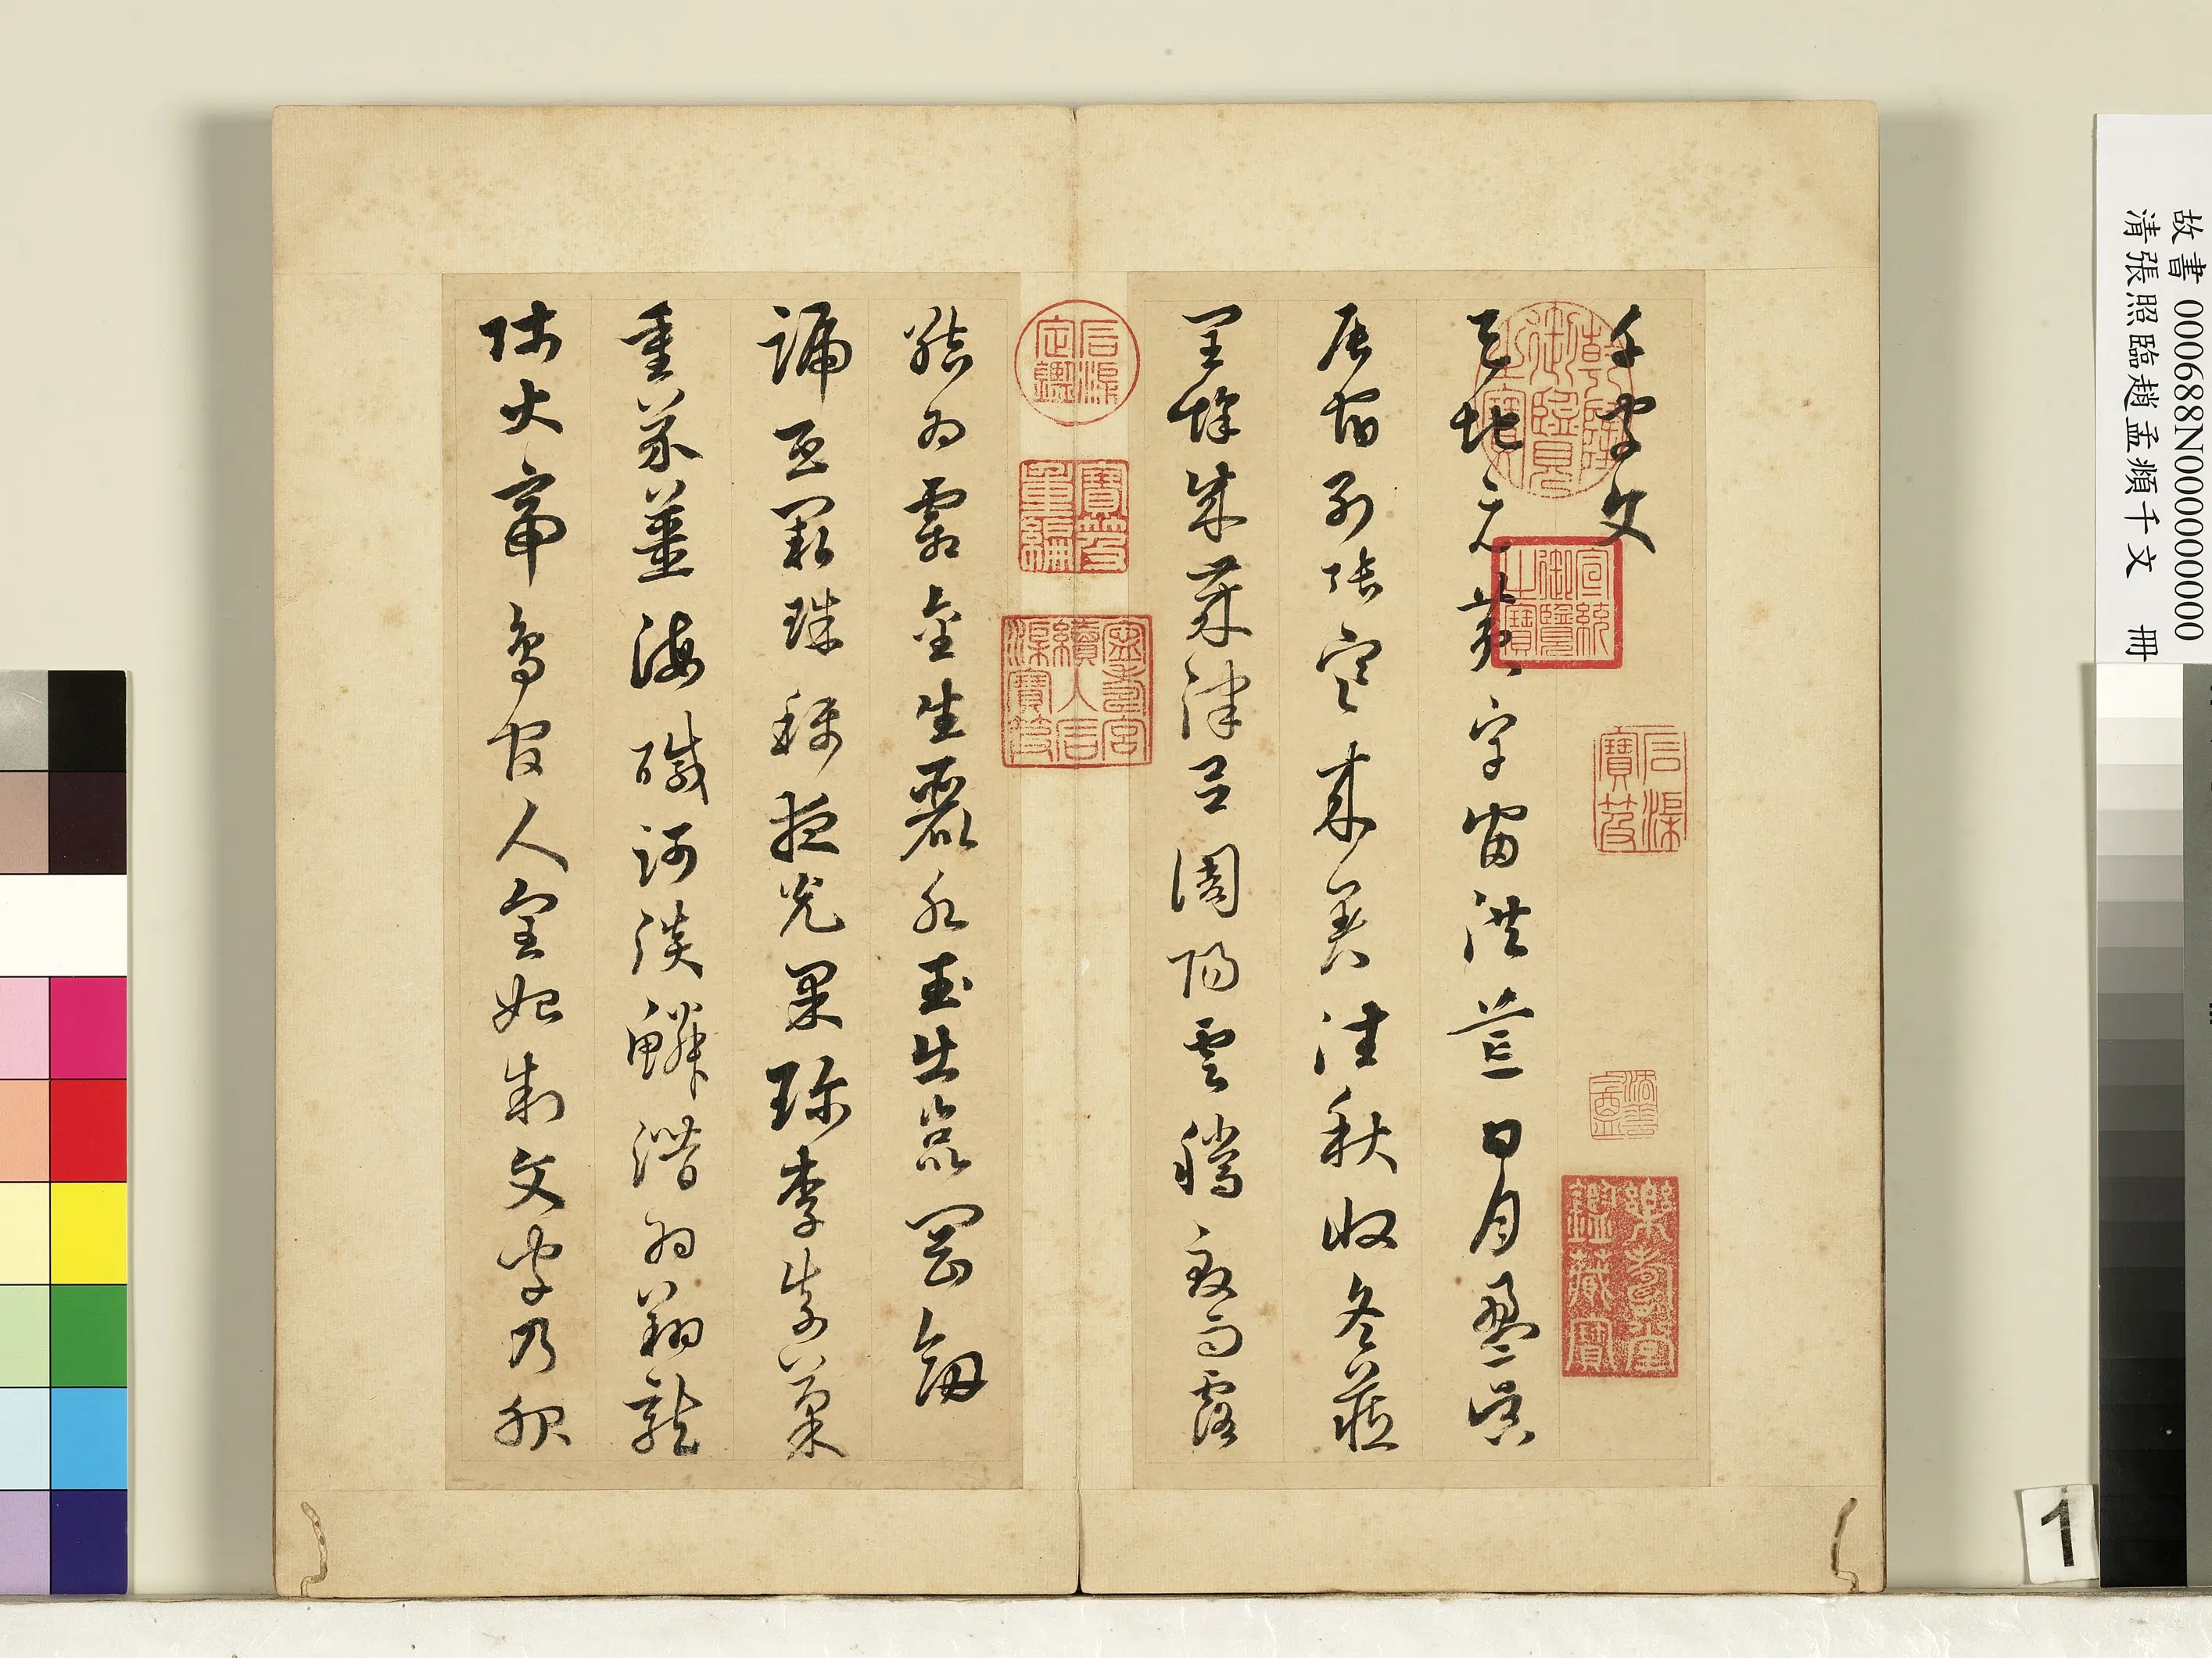 故書 000688N000000000
清張照臨趙孟頫千文 冊
千字文
天地元黃宇宙洪荒日月盈昃
辰宿列張寒來暑往秋收冬藏
閏餘成歲律呂調陽雲騰致雨露
結為霜金生麗水玉出崑岡劍
號巨闕珠稱夜光果珍李柰菜
重芥薑海鹹河淡鱗潛羽翔龍
師火帝鳥官人皇始制文字乃服
乾隆御覽之寶
宣統御覽之寶
石渠寶笈
樂壽堂鑑藏寶
石渠定鑑
寶笈重編
寧壽宮續入石渠寶笈
1